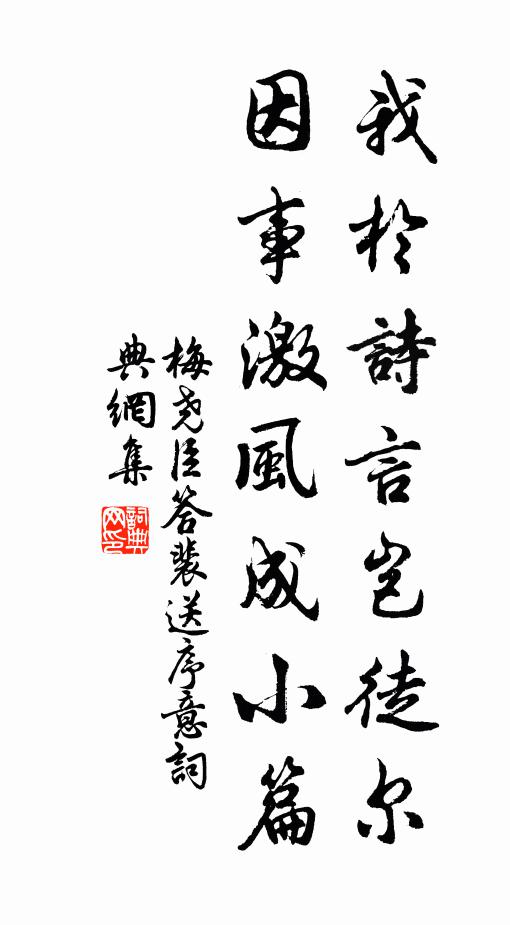 我於詩言豈徒尔
因事激風成小篇
梅尧臣答裴送序意詞
典網集
詞典网印